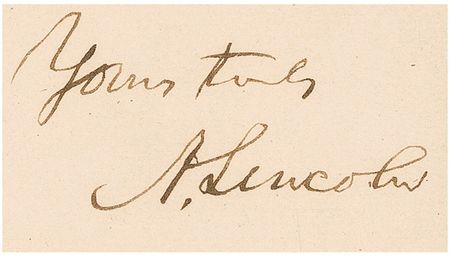 Yours truly
A. Lincoln